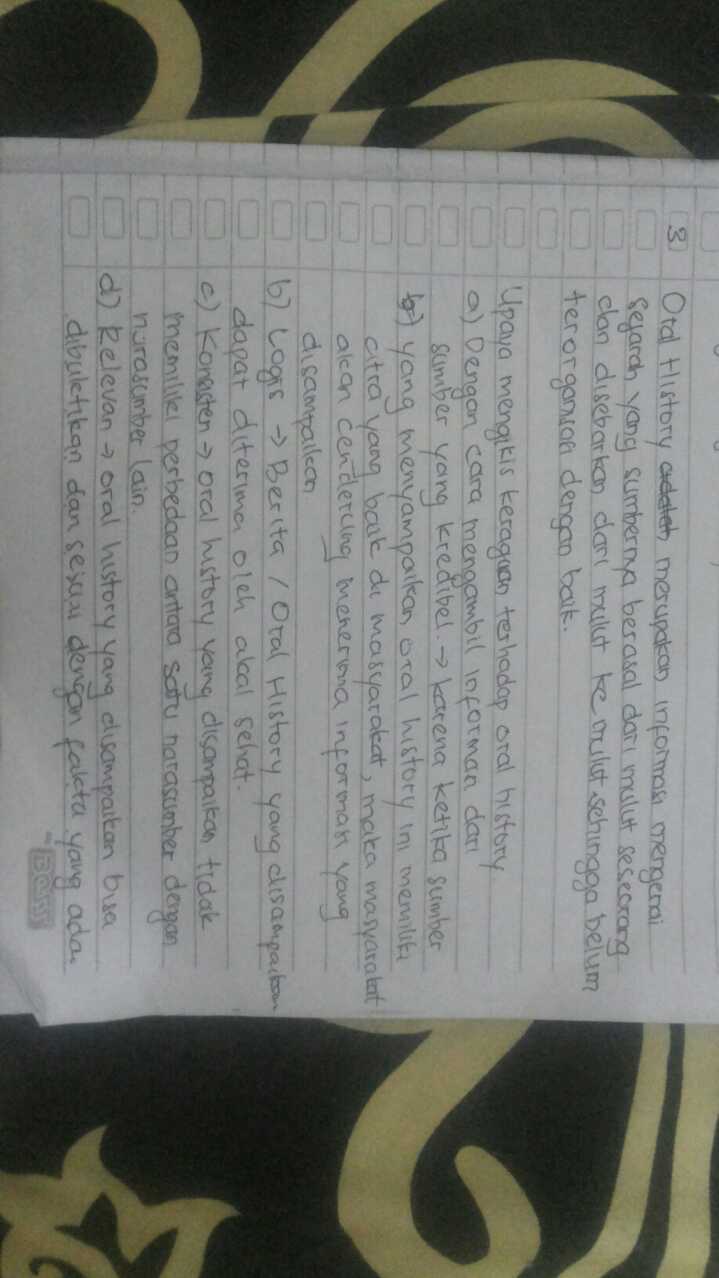 3 Oral History adalah merupakan informasi mengenai
sejarah yang sumbernya berasal dari mulut seseorang
dan disebarkan dari mulut ke mulut sehingga belum
terorganisasi dengan baik.
Upaya mengikis keraguan terhadap oral history
a) Dengan cara mengambil informan dari
sumber yang kredibel. → karena ketika sumber
b) yang menyampaikan oral history ini memiliki
citra yang baik di masyarakat, maka masyarakat
akan cenderung menerima informasi yang
disampaikan
b) Logis → Berita / Oral History yang disampaikan
dapat diterima oleh akal sehat.
c) Konsisten → oral history yang disampaikan tidak
memiliki perbedaan antara satu narasumber dengan
narasumber lain.
d) Relevan → oral history yang disampaikan bisa
dibuktikan dan sesuai dengan fakta yang ada.
BOSS